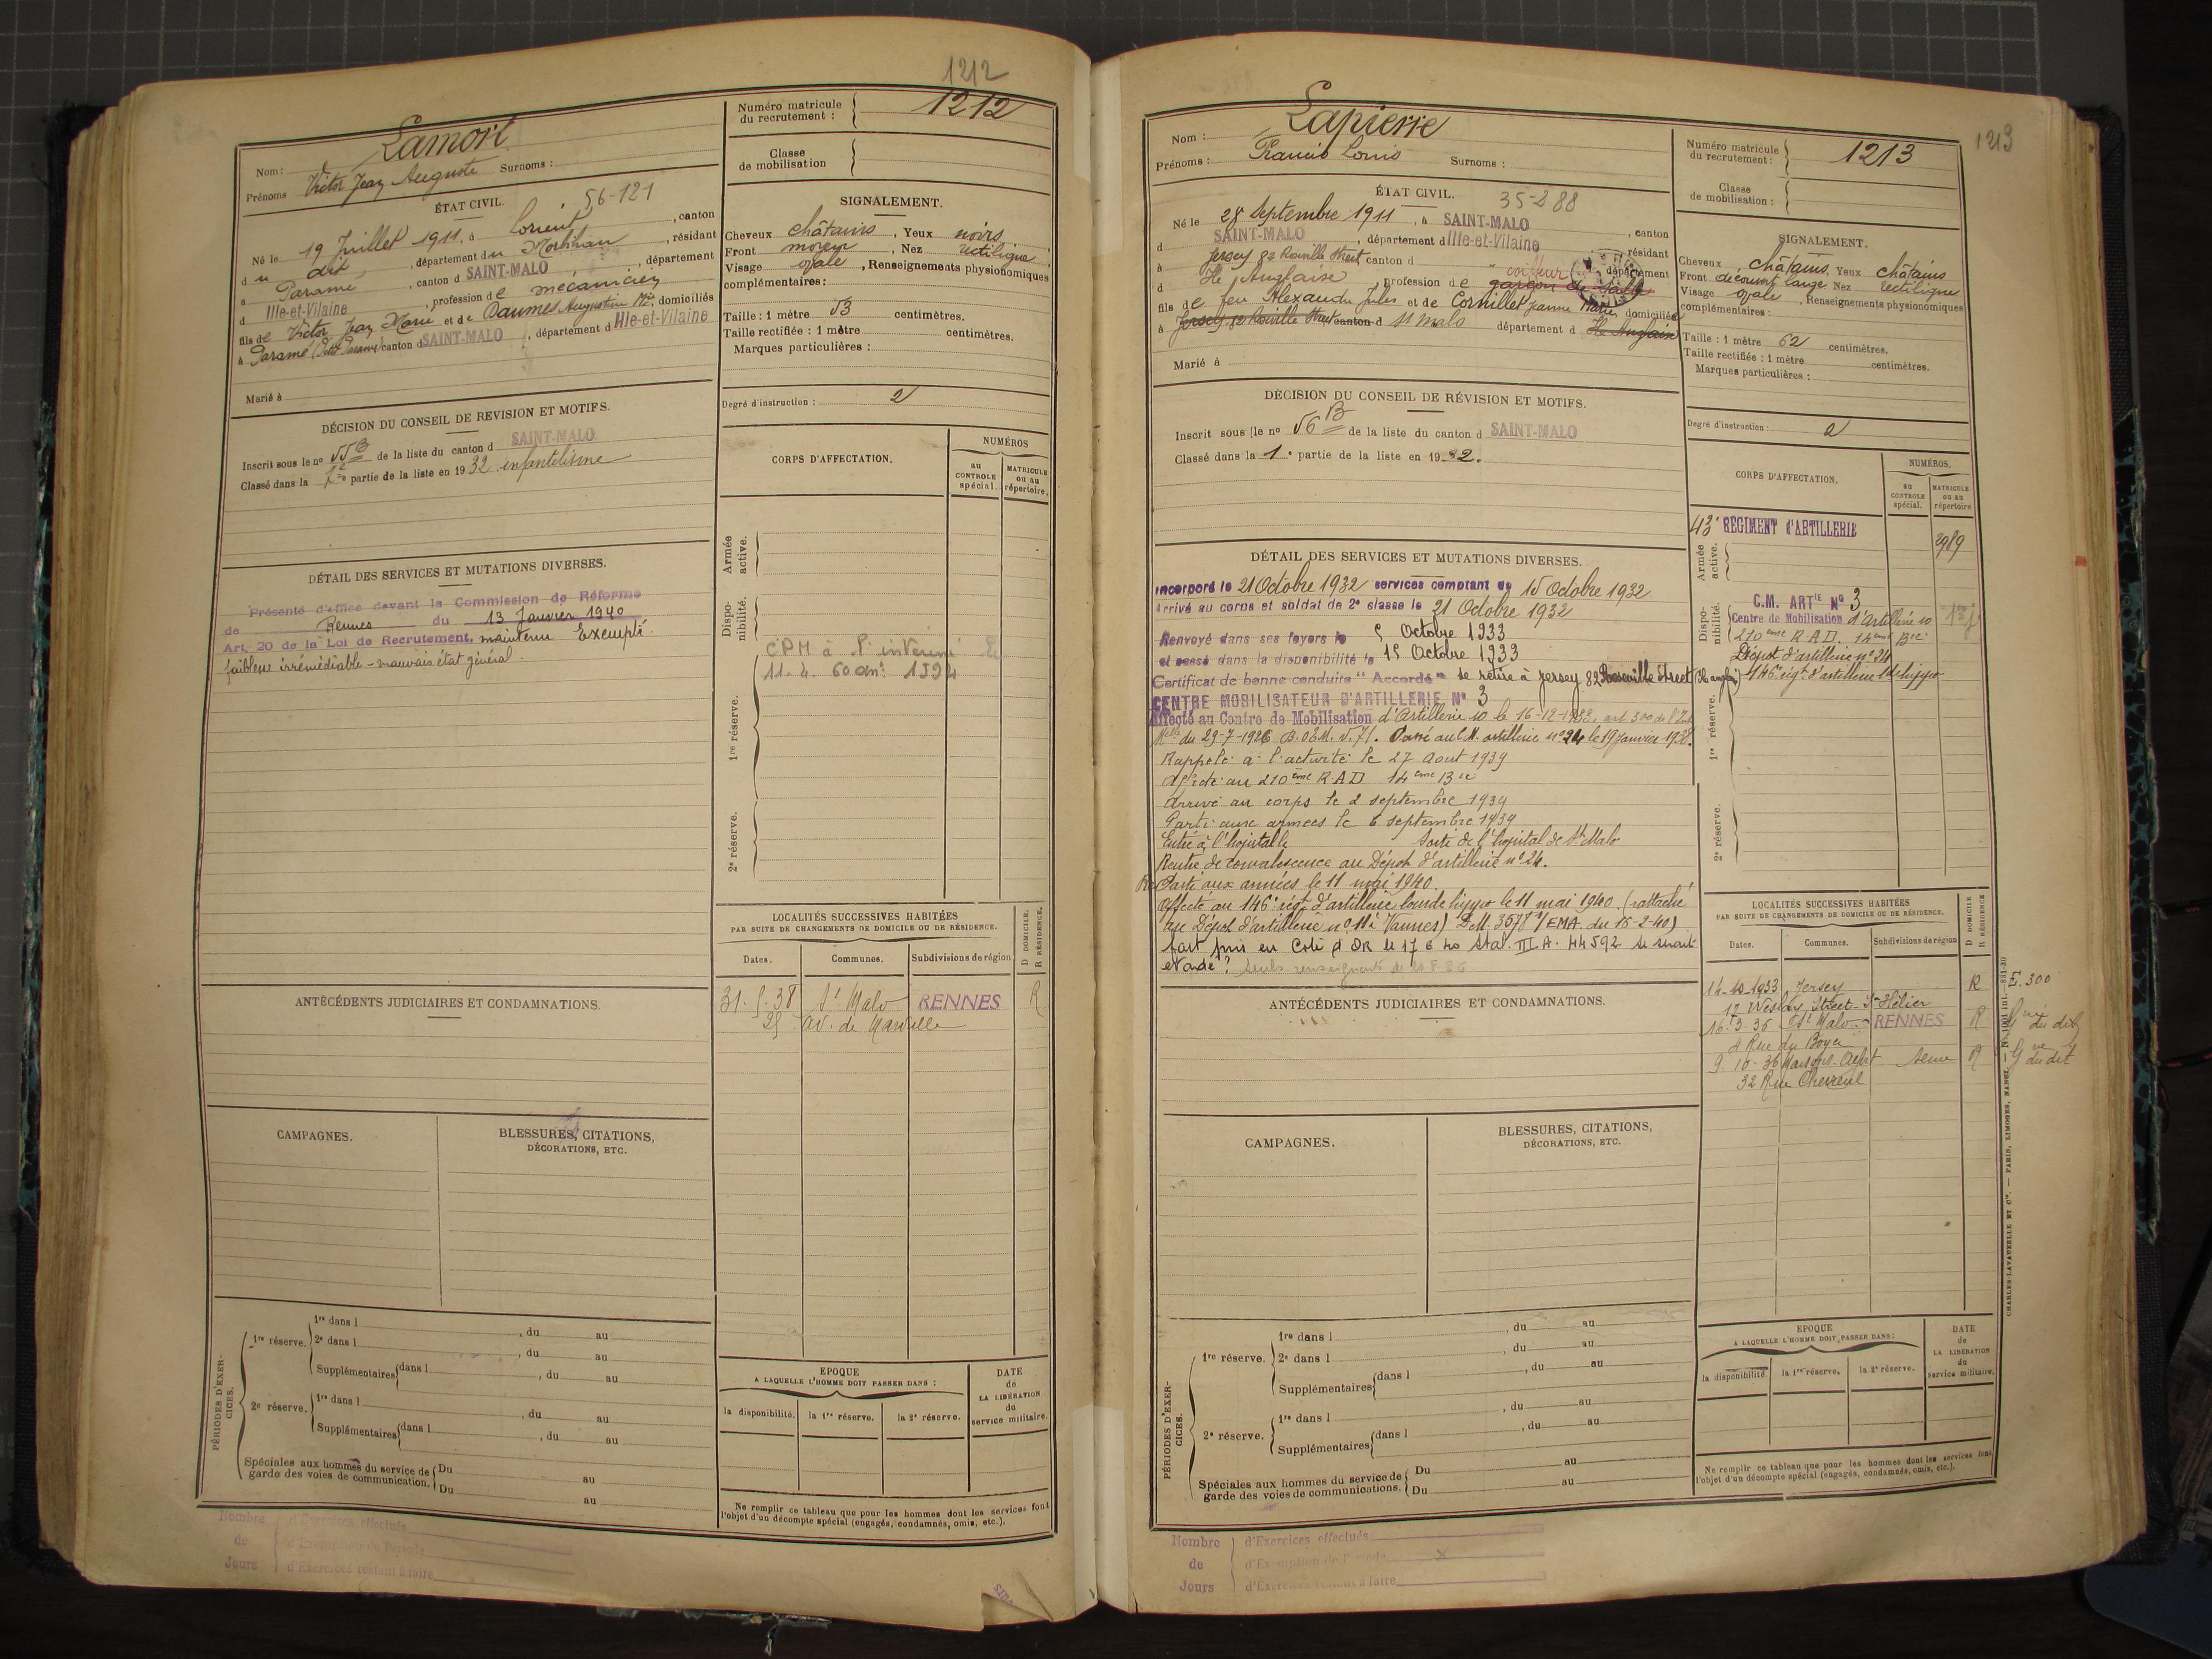 1212
Nom: Lamort
Prénoms Victor Jean Auguste Surnoms :
Numéro matricule du recrutement : 1212
Classe de mobilisation
ÉTAT CIVIL. 56-121
Né le 19 Juillet 1911, à Lorient, canton
du dit, département du Morbihan, résidant
à Paramé, canton d SAINT-MALO, département
d Ille-et-Vilaine, profession de mécanicien
fils de Victor Jean Marie et de Daumes Augustine Mie, domiciliés
à Paramé (Petit Paramé) canton d SAINT-MALO, département d Ille-et-Vilaine
Marié à
SIGNALEMENT.
Cheveux châtains, Yeux noirs
Front moyen, Nez rectiligne
Visage ovale, Renseignements physionomiques
complémentaires :
Taille : 1 mètre 53 centimètres.
Taille rectifiée : 1 mètre centimètres.
Marques particulières :
Degré d'instruction : 2
DÉCISION DU CONSEIL DE REVISION ET MOTIFS.
Inscrit sous le no 55 B de la liste du canton d SAINT-MALO
Classé dans la partie de la liste en 1932 infantilisme
DÉTAIL DES SERVICES ET MUTATIONS DIVERSES.
Présenté d'office devant la Commission de Réforme
de Rennes du 13 Janvier 1940
Art. 20 de la Loi de Recrutement, maintenu Exempté.
faiblesse irrémédiable - mauvais état général.
CORPS D'AFFECTATION.
NUMÉROS
au CONTROLE spécial.
MATRICULE ou au répertoire.
Armée active.
Disponibilité.
1re réserve.
2e réserve.
11. 4. 60
LOCALITÉS SUCCESSIVES HABITÉES
PAR SUITE DE CHANGEMENTS DE DOMICILE OU DE RÉSIDENCE.
D DOMICILE.
R RÉSIDENCE.
Dates. Communes. Subdivisions de région
31. 5. 38 St Malo RENNES R
25 av. de Marville
ANTÉCÉDENTS JUDICIAIRES ET CONDAMNATIONS.
CAMPAGNES.
BLESSURES, CITATIONS,
DÉCORATIONS, ETC.
PÉRIODES D'EXERCICES.
1re réserve.
1re dans l , du au
2e dans l , du au
Supplémentaires dans l , du au
2e réserve.
1re dans l , du au
Supplémentaires dans l , du au
Spéciales aux hommes du service de
garde des voies de communication.
Du au
Du au
EPOQUE
A LAQUELLE L'HOMME DOIT PASSER DANS :
la disponibilité. la 1re réserve. la 2e réserve.
DATE de LA LIBÉRATION du service militaire.
Ne remplir ce tableau que pour les hommes dont les services font
l'objet d'un décompte spécial (engagés, condamnés, omis, etc.).
Nombre de Jours
d'Exercices effectués
d'Exemption de Période
d'Exercices restant à faire
1213
Nom : Lapierre
Prénoms : Francis Louis Surnoms :
Numéro matricule du recrutement : 1213
Classe de mobilisation :
ÉTAT CIVIL. 35-288
Né le 28 Septembre 1911, à SAINT-MALO, canton
d SAINT-MALO, département d Ille-et-Vilaine, résidant
à Jersey 82 Roseville Street, canton d département
d Ile Anglaise, profession de garçon de salle coiffeur
fils de feu Alexandre Jules et de Cornillet Jeanne Marie, domiciliés
à Jersey 82 Roseville Street canton d St Malo département d Ile Anglaise
Marié à
SIGNALEMENT.
Cheveux châtains. Yeux châtains
Front découvert large Nez rectiligne
Visage ovale, Renseignements physionomiques
complémentaires :
Taille : 1 mètre 62 centimètres.
Taille rectifiée : 1 mètre centimètres.
Marques particulières :
Degré d'instruction : 2
DÉCISION DU CONSEIL DE RÉVISION ET MOTIFS.
Inscrit sous le no 56 B de la liste du canton d SAINT-MALO
Classé dans la 1e partie de la liste en 1932.
DÉTAIL DES SERVICES ET MUTATIONS DIVERSES.
Incorporé le 21 Octobre 1932 services comptant du 15 Octobre 1932
Arrivé au corps et soldat de 2e classe le 21 Octobre 1932
Renvoyé dans ses foyers le 5 Octobre 1933
et passé dans la disponibilité le 15 Octobre 1933
Certificat de bonne conduite "Accordé" se retire à Jersey 82 Roseville Street (Ile anglse)
CENTRE MOBILISATEUR D'ARTILLERIE No 3
Affecté au Centre de Mobilisation d'Artillerie 10 le 16-12-1933, art 300 de l'Inst
Mlle du 29-7-1926 B.O.E.M. v. 71. Passé au C.M. artillerie no 24 le 19 janvier 1938.
Rappelé à l'activité le 27 Aout 1939
Affecté au 210ème R A D 14ème Bie
Arrivé au corps le 2 septembre 1939
Parti aux armées le 6 septembre 1939
Entré à l'hopital le Sorti de l'hopital de St Malo
Rentré de convalescence au Dépôt d'artillerie no 24.
Re Parti aux armées le 11 mai 1940.
Affecté au 146e régt d'artillerie lourde hippo le 11 mai 1940. (rattaché
au Dépôt d'artillerie no 11 à Vannes) D.M. 3577 1/EMA du 15-2-40)
fait pris en Cote d'OR le 17 6 40 Stal. III A. 44592 se serait
evadé ? Seuls renseignements
CORPS D'AFFECTATION.
NUMÉROS.
au CONTROLE spécial.
MATRICULE ou au répertoire
43e RÉGIMENT d'ARTILLERIE 2989
Armée active.
C.M. ARTIE No 3
Centre de Mobilisation d'Artillerie 10
210ème R.A.D. 14ème Bie
Dépôt d'artillerie no 24
146e régt d'artillerie lde hippo
Disponibilité.
1re réserve.
2e réserve.
LOCALITÉS SUCCESSIVES HABITÉES
PAR SUITE DE CHANGEMENTS DE DOMICILE OU DE RÉSIDENCE.
D DOMICILE
R RÉSIDENCE
Dates. Communes. Subdivisions de région
14-10-1933 Jersey R E. 300
12 Wesley Street - St Hélier
16. 3. 36 St Malo RENNES R Gné du dit
4 Rue du Boyer
9. 10. 36 Maisons-Alfort Seine R Gne du dit
32 Rue Chevreul
ANTÉCÉDENTS JUDICIAIRES ET CONDAMNATIONS.
CAMPAGNES.
BLESSURES, CITATIONS,
DÉCORATIONS, ETC.
PÉRIODES D'EXERCICES.
1re réserve.
1re dans l , du au
2e dans l , du au
Supplémentaires dans l , du au
2e réserve.
1re dans l , du au
Supplémentaires dans l , du au
Spéciales aux hommes du service de
garde des voies de communications.
Du au
Du au
EPOQUE
A LAQUELLE L'HOMME DOIT PASSER DANS :
la disponibilité. la 1re réserve. la 2e réserve.
DATE de LA LIBÉRATION du service militaire.
Ne remplir ce tableau que pour les hommes dont les services font
l'objet d'un décompte spécial (engagés, condamnés, omis, etc.).
Nombre de Jours
d'Exercices effectués
d'Exemption de Période x
d'Exercices restant à faire
CHARLES-LAVAUZELLE ET Cie. — PARIS, LIMOGES, NANCY.